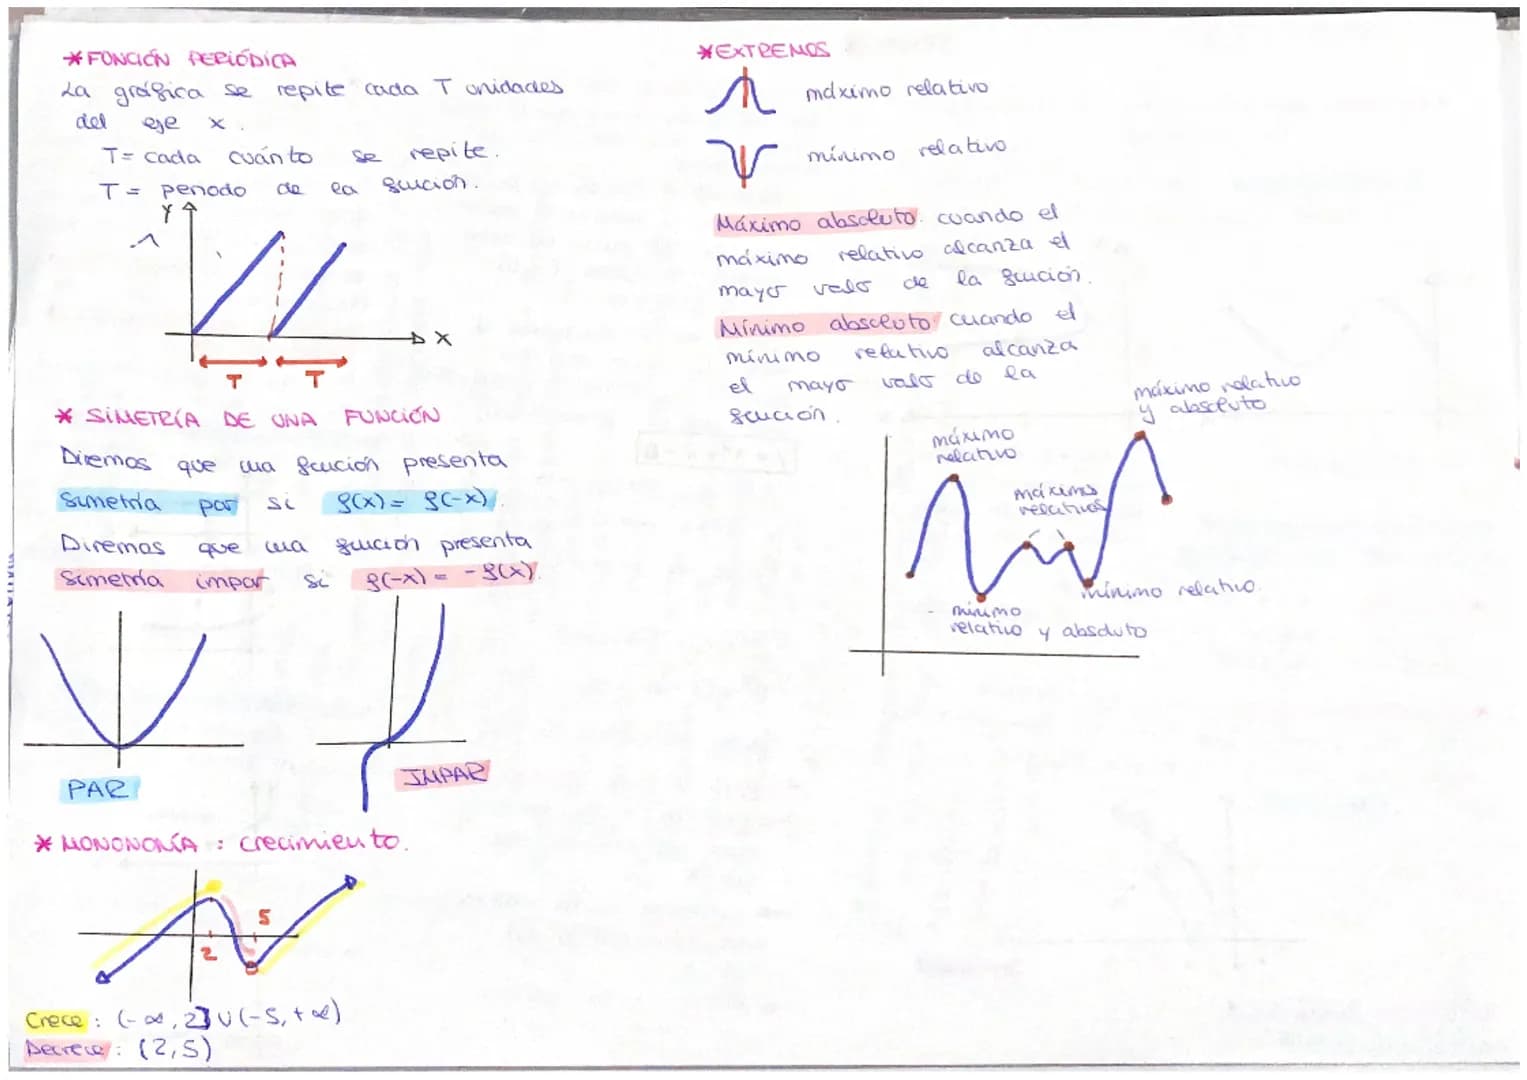 * FUNCIÓN PERIÓDICA
La gráfica se repite cada T unidades
del eje x.
T= cada cuánto se repite.
T= periodo de la función.
Y
X
T T
* SIMETRÍA DE UNA FUNCIÓN
Diremos que una función presenta
simetría par si f(x)= f(-x).
Diremos que una función presenta
simetría impar si f(-x)= -f(x).
PAR
IMPAR
* MONONONÍA : crecimiento.
5
2
Crece: (-∞,2]∪(-5,+∞)
Decrece: (2,5)
* EXTREMOS
máximo relativo
mínimo relativo
Máximo absoluto: cuando el
máximo relativo alcanza el
mayor valor de la función.
Mínimo absoluto cuando el
mínimo relativo alcanza
el mayor valor de la
función.
máximo relativo
y absoluto
máximo
relativo
máximos
relativos
mínimo relativo.
mínimo
relativo y absoluto